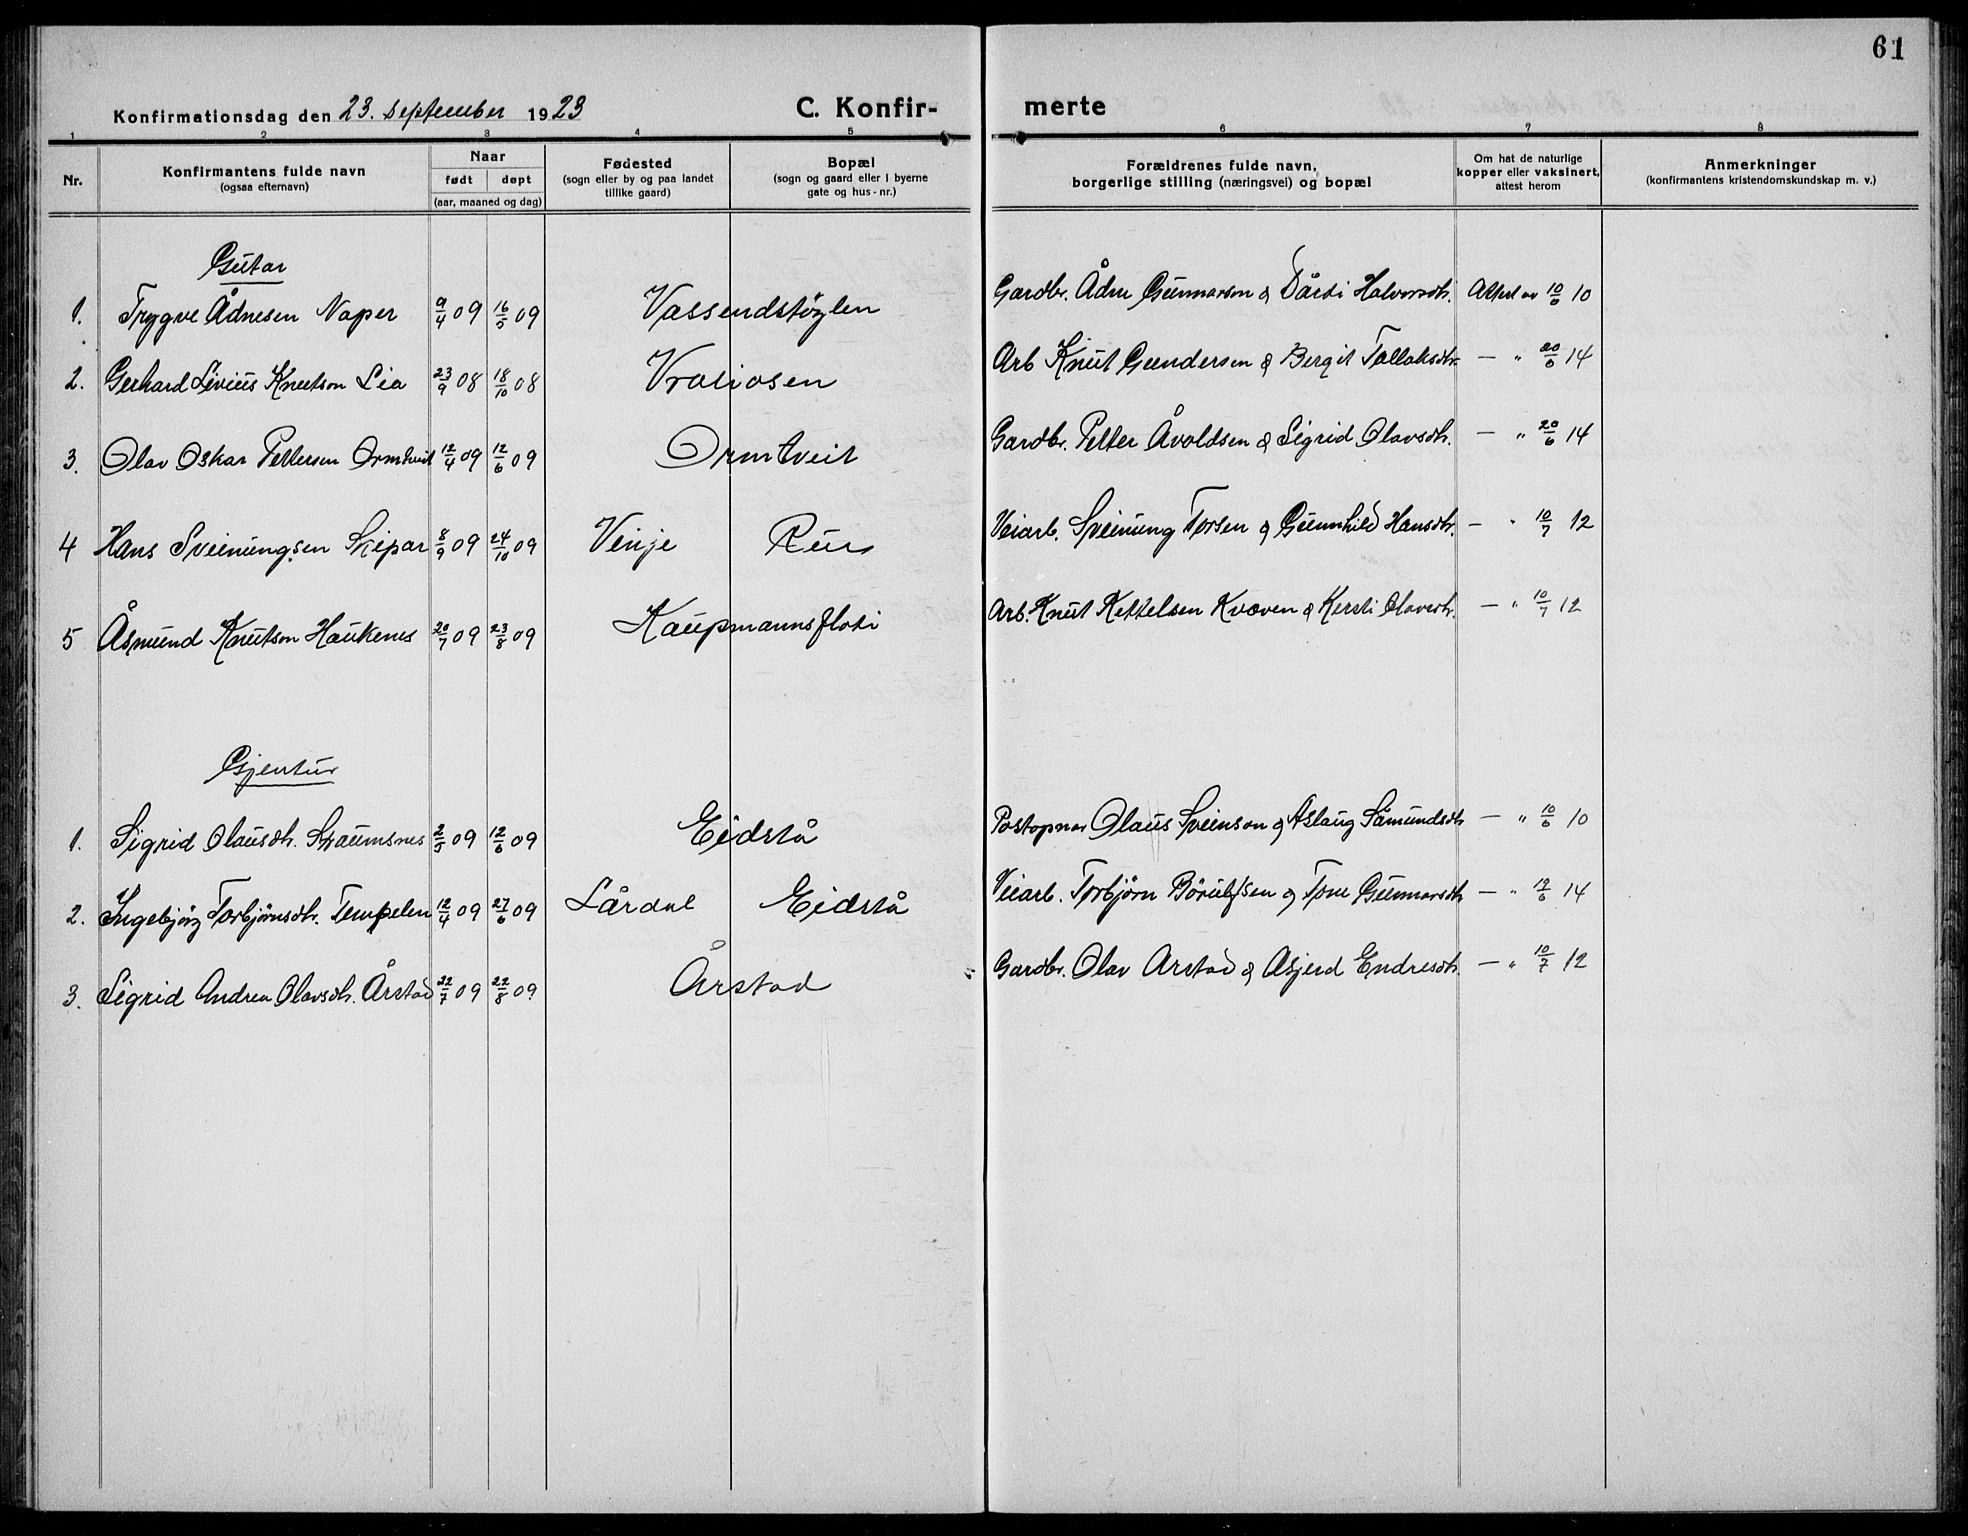 61
Konfirmationsdag den 23. september 1923 C. Konfirmerte
1 2 3 4 5 6 7 8
Nr. Konfirmantens fulde navn (ogsaa efternavn) Naar født døpt (aar, maaned og dag) Fødested (sogn eller by og paa landet tillike gaard) Bopæl (sogn og gaard eller i byerne gate og hus-nr.) Forældrenes fulde navn, borgerlige stilling (næringsvei) og bopæl Om hat de naturlige kopper eller vaksinert, attest herom Anmerkninger (konfirmantens kristendomskundskap m. v.)
Gutar
1. Trygve Ådnesen Naper 9/4 09 16/5 09 Vassendstøylen Gardbr. Ådne Gunnarson & Dårdi Halvorsdtr. Attest av 10/6 10
2. Gerhard Livius Knutson Lia 23/9 08 18/10 08 Vraliosen Arb Knut Gundersen & Bergit Tallaksdtr. — " 20/6 14
3. Olav Oskar Pettersen Ormtveit 12/4 09 12/6 09 Ormtveit Gardbr. Petter Åvoldsen & Sigrid Olavsdtr. — " 20/6 14
4 Hans Sveinungsen Skipar 8/9 09 24/10 09 Vinje Rui Veiarb. Sveinung Torsen & Gunnhild Hansdtr. — " 10/7 12
5 Åsmund Knutson Haukenes 20/7 09 23/8 09 Kaupmannsfloti Arb. Knut Kettelsen Kvæven & Kersti Olavsdtr. — " 10/7 12
Gjentur
1. Sigrid Olausdtr. Straumsnes 2/5 09 12/6 09 Eidstå Postopnar Olaus Sveinson & Aslaug Såmundsdtr — " 10/6 10
2. Ingebjørg Torbjørnsdtr. Tempelen 12/4 09 27/6 09 Lårdal Eidstå Veiarb. Torbjørn Børulfsen & Tone Gunnarsdtr — " 12/6 14
3. Sigrid Andrea Olavsdtr. Årstad 22/7 09 22/8 09 Årstad Gardbr. Olav Årstad & Asjerd Endresdtr. — " 10/7 12